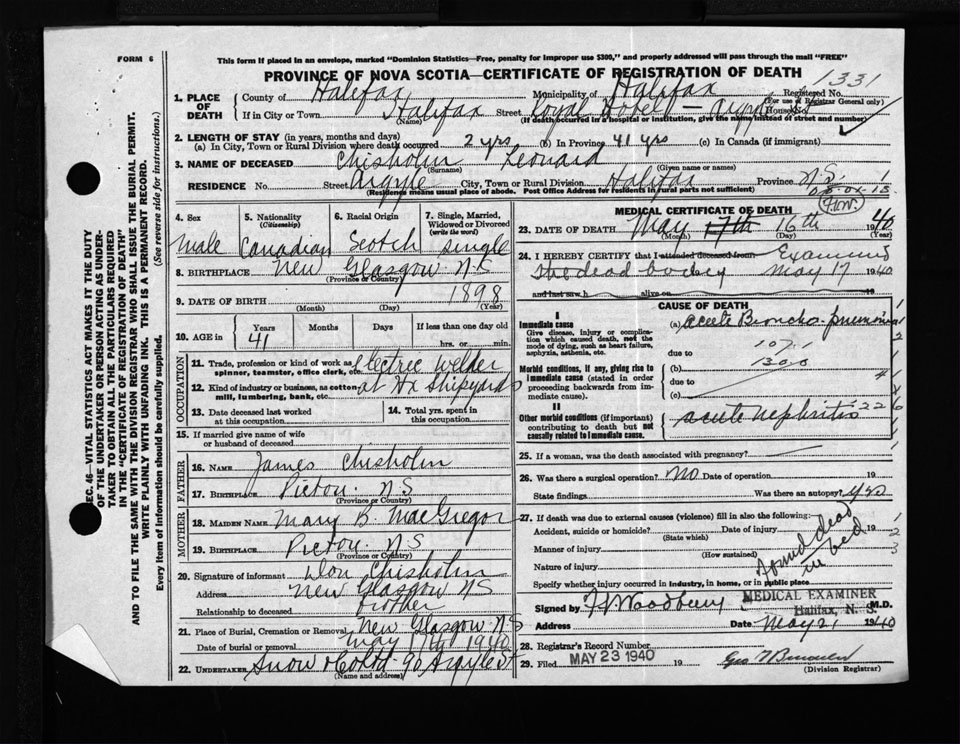 FORM 6
This form if placed in an envelope, marked "Dominion Statistics—Free, penalty for improper use $300," and properly addressed will pass through the mail "FREE"
PROVINCE OF NOVA SCOTIA—CERTIFICATE OF REGISTRATION OF DEATH
1331
1. PLACE OF DEATH
County of Halifax Municipality of Halifax Registered No.
(For use of Registrar General only)
If in City or Town Halifax Street Royal Hotel — Argyle St House No.
(Name) (If death occurred in a hospital or institution, give the name instead of street and number)
2. LENGTH OF STAY (in years, months and days)
(a) In City, Town or Rural Division where death occurred 2 yrs (b) In Province 41 yrs (c) In Canada (if immigrant)
3. NAME OF DECEASED Chisholm Leonard
(Surname) (Given name or names)
RESIDENCE No. Street Argyle City, Town or Rural Division Halifax Province N.S.
(Residence means usual place of abode. Post Office Address for residents in rural parts not sufficient)
4. Sex
Male
5. Nationality
(Citizenship)
Canadian
6. Racial Origin
Scotch
7. Single, Married, Widowed or Divorced
(write the word)
Single
8. BIRTHPLACE New Glasgow N.S
(Province or Country)
9. DATE OF BIRTH 1898
(Month) (Day) (Year)
10. AGE in
Years Months Days If less than one day old
41 hrs. or min.
OCCUPATION
11. Trade, profession or kind of work as spinner, teamster, office clerk, etc. Electric Welder
12. Kind of industry or business, as cotton mill, lumbering, bank, etc. at Hx Shipyards
13. Date deceased last worked at this occupation
14. Total yrs. spent in this occupation
15. If married give name of wife or husband of deceased
FATHER
16. NAME James Chisholm
17. BIRTHPLACE Pictou N.S
(Province or Country)
MOTHER
18. MAIDEN NAME Mary B. MacGregor
19. BIRTHPLACE Pictou N.S
(Province or Country)
20. Signature of informant Don Chisholm
Address New Glasgow N.S
Relationship to deceased brother
21. Place of Burial, Cremation or Removal New Glasgow N.S
Date of burial or removal May 19th 1940
22. UNDERTAKER Snow & Co Ltd - 90 Argyle St
(Name and address)
MEDICAL CERTIFICATE OF DEATH
23. DATE OF DEATH May 17th 16th 1940
(Month) (Day) (Year)
24. I HEREBY CERTIFY that I attended deceased from Examined
the dead body May 17 1940
and last saw h alive on
CAUSE OF DEATH
I
Immediate cause
Give disease, injury or complication which caused death, not the mode of dying, such as heart failure, asphyxia, asthenia, etc.
(a) acute Broncho-pneumonia
due to
107.1
130.0
Morbid conditions, if any, giving rise to immediate cause (stated in order proceeding backwards from immediate cause).
(b)
due to
(c)
II
Other morbid conditions (if important) contributing to death but not causally related to immediate cause.
acute nephritis
25. If a woman, was the death associated with pregnancy?
26. Was there a surgical operation? No Date of operation 19
State findings Was there an autopsy? yes
27. If death was due to external causes (violence) fill in also the following:
Accident, suicide or homicide? Date of injury 19
(State which)
Manner of injury
(How sustained)
Nature of injury
found dead in bed
Specify whether injury occurred in industry, in home, or in public place
Signed by F.V. Woodbury M.D.
MEDICAL EXAMINER
Halifax, N. S.
Address Date May 21 1940
28. Registrar's Record Number
29. Filed MAY 23 1940 19
(Division Registrar)
SEC. 46—VITAL STATISTICS ACT MAKES IT THE DUTY
OF THE UNDERTAKER OR PERSON ACTING AS UNDER-
TAKER TO OBTAIN ALL THE PARTICULARS REQUIRED
IN THE "CERTIFICATE OF REGISTRATION OF DEATH"
AND TO FILE THE SAME WITH THE DIVISION REGISTRAR WHO SHALL ISSUE THE BURIAL PERMIT.
WRITE PLAINLY WITH UNFADING INK. THIS IS A PERMANENT RECORD.
Every item of Information should be carefully supplied. (See reverse side for instructions.)